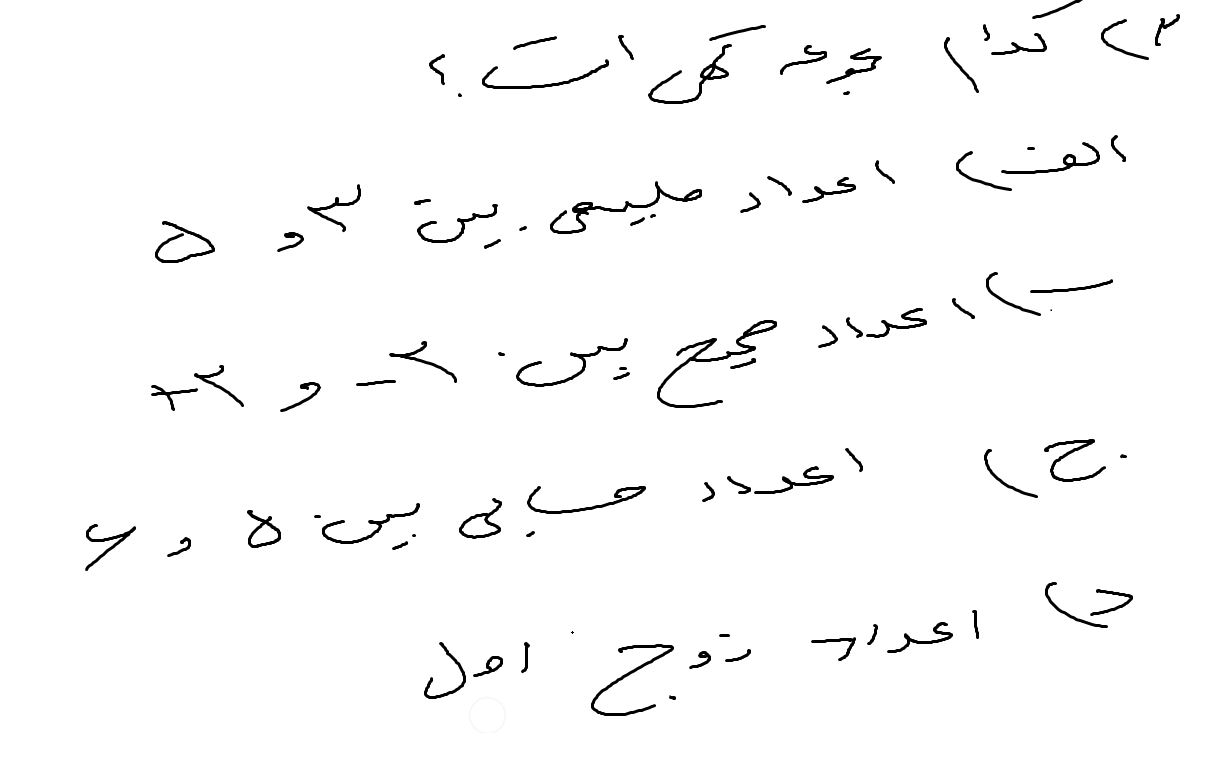 ۲) کدام مجموعه تهی است؟
الف) اعداد طبیعی بین ۳ و ۵
ب) اعداد صحیح بین ۲- و ۲+
ج) اعداد حسابی بین ۵ و ۶
د) اعداد زوج اول